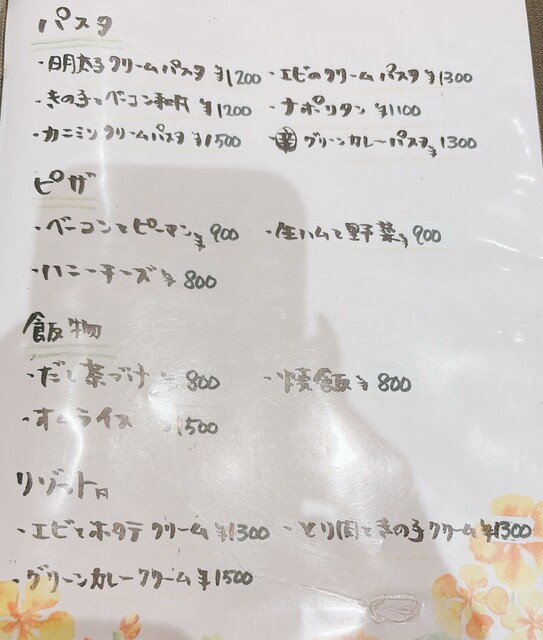 パスタ
・明太子クリームパスタ ¥1200 ・エビのクリームパスタ ¥1300
・きの子とベーコン和風 ¥1200 ・ナポリタン ¥1100
・カニミソクリームパスタ ¥1500 辛 グリーンカレーパスタ ¥1300
ピザ
・ベーコンとピーマン ¥900 ・生ハムと野菜 ¥900
・ハニーチーズ ¥800
飯物
・だし茶づけ ¥800 ・焼飯 ¥800
・オムライス ¥1500
リゾット
・エビとホタテクリーム ¥1300 ・とり肉ときの子クリーム ¥1300
・グリーンカレークリーム ¥1500